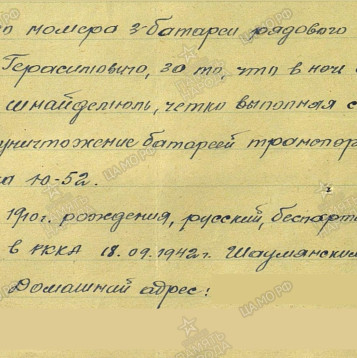 номера 3 батареи рядового
Герасимовича, за то, что в ночь
шнайдемюль, четко выполняя с
уничтожение батареей транспор
Ю-52.
1910 г. рождения, русский, беспарт
в РККА 18.09.1942 г. Шаумянским
Домашний адрес: